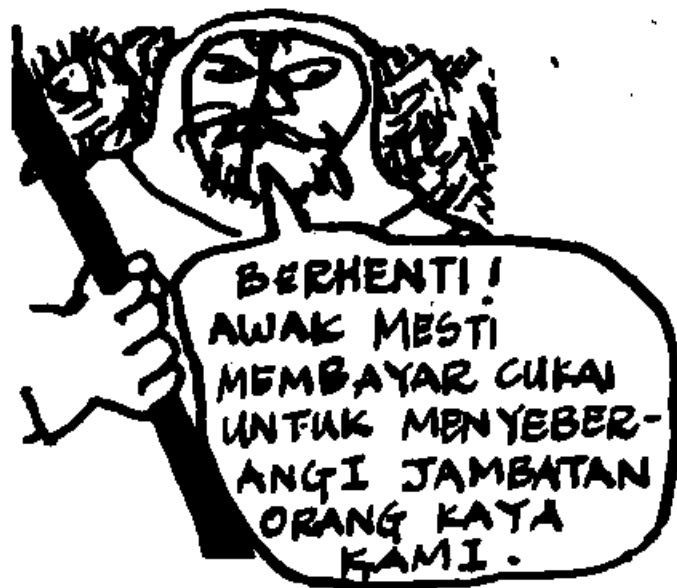 BERHENTI!
AWAK MESTI
MEMBAYAR CUKAI
UNTUK MENYEBER-
ANGI JAMBATAN
ORANG KAYA
KAMI.